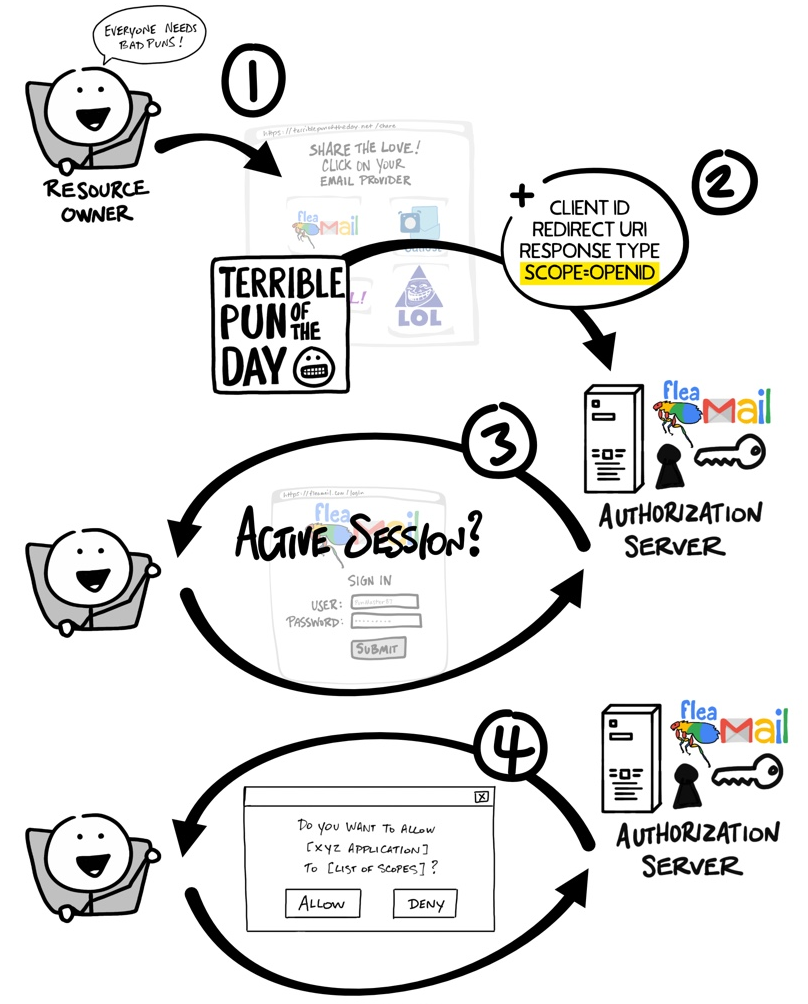 EVERYONE NEEDS
BAD PUNS!
1
RESOURCE
OWNER
https://terriblepunoftheday.net/share
SHARE THE LOVE!
CLICK ON YOUR
EMAIL PROVIDER
flea
Mail
L!
LOL
TERRIBLE
PUN OF THE
DAY
2
+
CLIENT ID
REDIRECT URI
RESPONSE TYPE
SCOPE=OPENID
flea
Mail
AUTHORIZATION
SERVER
3
https://fleamail.com/login
flea
ail
ACTIVE SESSION?
SIGN IN
USER:
PASSWORD: ........
SUBMIT
4
flea
Mail
AUTHORIZATION
SERVER
X
DO YOU WANT TO ALLOW
[XYZ APPLICATION]
TO [LIST OF SCOPES]?
ALLOW DENY